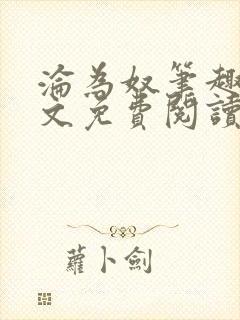 淪為奴筆趣
文免費閱讀
蘿卜劍